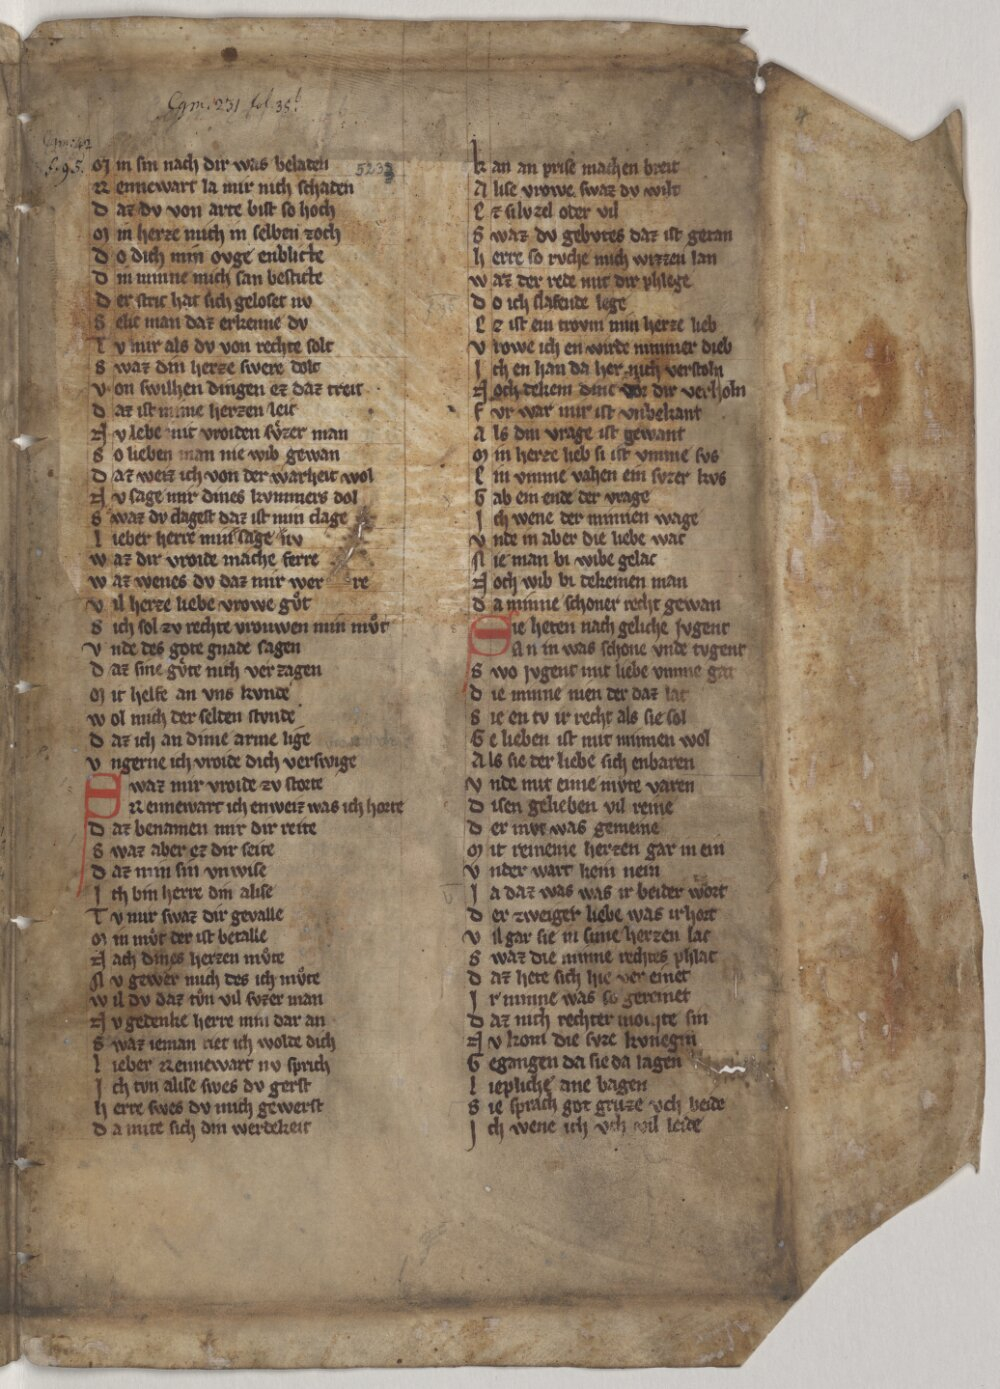 Cgm. 231 fol. 35b
Cgm. 42
f. 95.
5233
M in sin nach dir was belaten
R ennewart la mir nich schaten
D az dv von arte bist so hoch
M in herze mich in selben zoch
D o dich min ovge enblicte
D in minne mich san besticte
D er strit hat sich geloset nv
S elic man daz erkenne dv
T v mir als dv von rechte solt
S waz din herze swere dolt
V on swilhen dingen ez daz treit
D az ist mime herzen leit
N v lebe mit vroiden svͦzer man
S o lieben man nie wib gewan
D az weiz ich von der warheit wol
N v sage mir dines kvmmers dol
S waz dv clagest daz ist min clage
L ieber herre min sage nv
W az dir vroide mache ferre
W az wenes dv daz mir wer re
V il herze liebe vrowe gvͦt
S ich sol zv rechte vrouwen min mvͦt
V nde des gote gnade sagen
D az sine gvͦte nich verzagen
M it helfe an vns kvnde
W ol mich der selden stvnde
D az ich an dime arme lige
V ngerne ich vroide dich verswige
S waz mir vroide zv storte
Rennewart ich enweiz was ich horte
D az benamen mir dir reite
S waz aber ez dir seite
D az min sin vnwise
I ch bin herre din alise
T v mir swaz dir gevalle
M in mvͦt der ist betalle
N ach dines herzen mvͦte
N v gewer mich des ich mvͦte
W il dv daz tvͦn vil svzer man
N v gedenke herre min dar an
S waz ieman riet ich wolde dich
L ieber Rennewart nv sprich
I ch tvn alise swes dv gerst
H erre swes dv mich gewerst
D a mite sich din werdekeit
K an an prise machen breit
A lise vrowe swaz dv wilt
E z si lvzel oter vil
S waz dv gebvtes daz ist getan
H erre so rvche mich wizzen lan
W az der rede mit dir phlege
D o ich slafende lege
E z ist ein trovm min herze lieb
V rowe ich en wirde nimmer dieb
I ch en han da her nich verstoln
N och tekein dinc vor dir verholn
F vr war mir ist vnbekant
A ls din vrage ist gewant
M in herze lieb si ist vmme svs
E in vmme vahen ein svzer kvs
G ab ein ende der vrage
I ch wene der minnen wage
V nde in aber die liebe wac
N ie man bi wibe gelac
N och wib bi tekeinen man
D a minne schoner recht gewan
S ie heten nach geliche ivgent
An in was schone vnde tvgent
S wo ivgent mit liebe vmme gat
D ie minne nien der daz lat
S ie en tv ir recht als sie sol
G e lieben ist mit minnen wol
A ls sie der liebe sich enbaren
V nde mit eime mvte varen
D isen gelieben vil reine
D er mvt was gemeine
M it reineme herzen gar in ein
V nder wart kein nein
I a daz was was ir beider wort
D er zweiger liebe was ir hort
V il gar sie in sime herzen lac
S waz die minne rechtes phlac
D az hete sich hie ver einet
I r minne was so gereinet
D az nich rechter mochte sin
N v kom die svze kvnegin
G egangen da sie da lagen
L iepliche ane bagen
S ie sprach got grvze vch beide
I ch wene ich vch wil leide